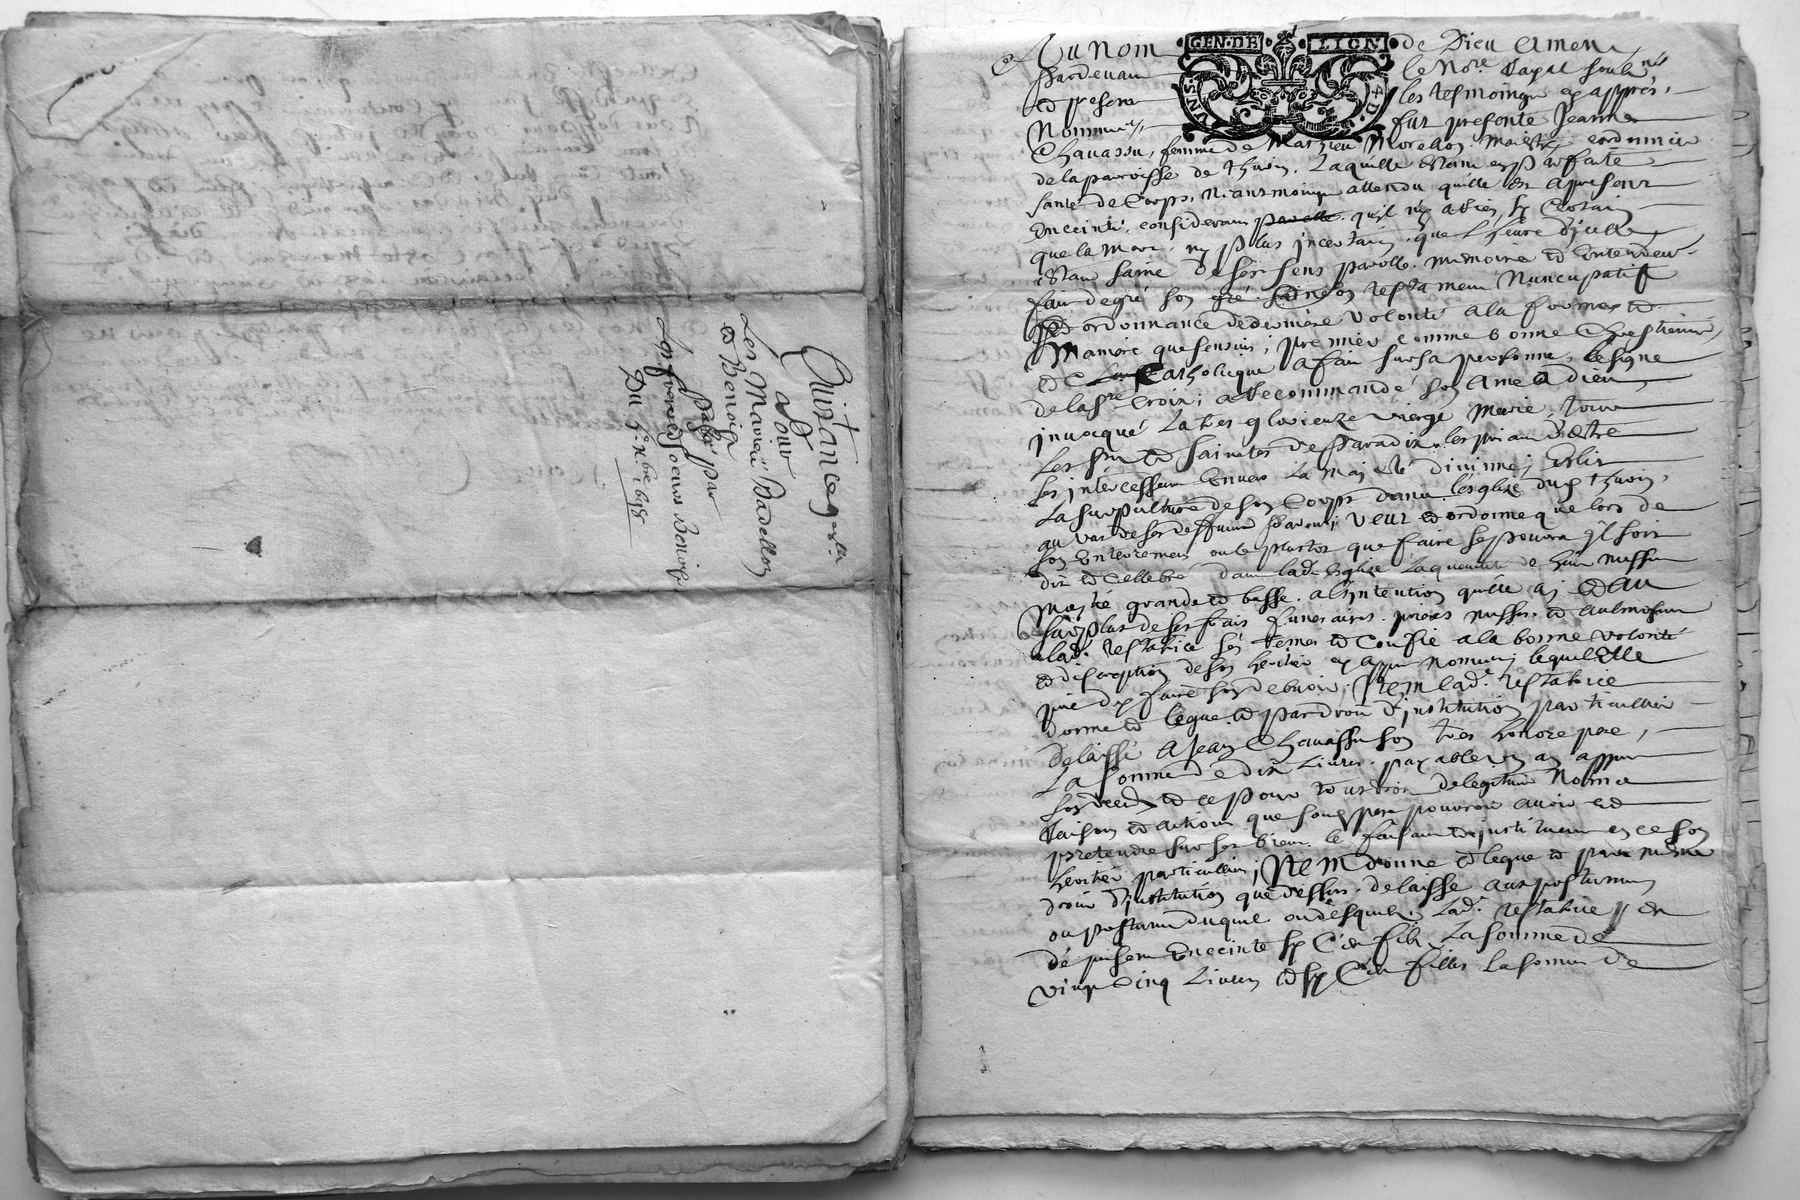 Quittance
pour
Les Mariés Badellon
et Benoist
passé par
Les freres et soeurs Benoist
Du 5e Xbre 1698
GEN·DE LION
Au nom de Dieu Amen
Pardevant le Nore Royal soubne
et presens les tesmoings cy appres
Nommes, fut presente Jeanne
Chavassu, femme de Mathieu Morellon Maistre cordonnier
de la parroisse de thurin, Laquelle estant en parfaite
santé de Corps, Neantmoings attendu quelle est a present
Enceinte, considerant quil ny a rien sy Certain
que la Mort, ny plus incertain que Lheure dicelle,
Estant saine de ses sens parolle, memoire et entendem
fait de gré son testament Nuncupatif
et ordonnance de derniere volonté a la forme et
Maniere que sensuit; premier comme bonne Chrestienne,
et Catholique a fait sur sa personne le signe
de la Ste Croix; a recommandé son ame a dieu,
invocqué La tres glorieuze vierge Marie, tous
Les sts et saintes de Paradix les priant destre
ses intercesseurs Envers La majesté divinne; Eslit
La sepulture de son Corps dans lesglize dud thurin,
au vas de ses deffunts Parents; veut et ordonne que lors de
son Enterrement ou le plustot que faire se pourra qil soit
dit et Cellebré dans lad Esglize La quantité de huit messes
moytié grande et basse, a lintention quelle a; et au
surplus de ses frais funeraires, prieres messes et aulmosnes
lad. testatrice sen remet et Confie a la bonne volonté
et discretion de son heritier cy appres nommé; lequel Elle
prie dy faire son debvoir; Item lad. testatrice
donne et legue et par droit dinstitution particulliere
delaissé a Jean Chavassu son tres honoré pere,
La somme de dix Livres payable un an appres
son deced et ce pour tous droits de legitime Nature
Raisons et actions que sond pere pourroit avoir et
pretendre sur ses biens le faisant et instituant en ce son
heritier particullier; Item donne et legue et par mesme
droit dinstitution que dessus, delaisse aux posthumes
ou posthume duquel ou desquels Lad. testatrice est
de present Enceinte sy Cest fils La somme de
vingt Cinq Livres et sy Cest filles La somme de